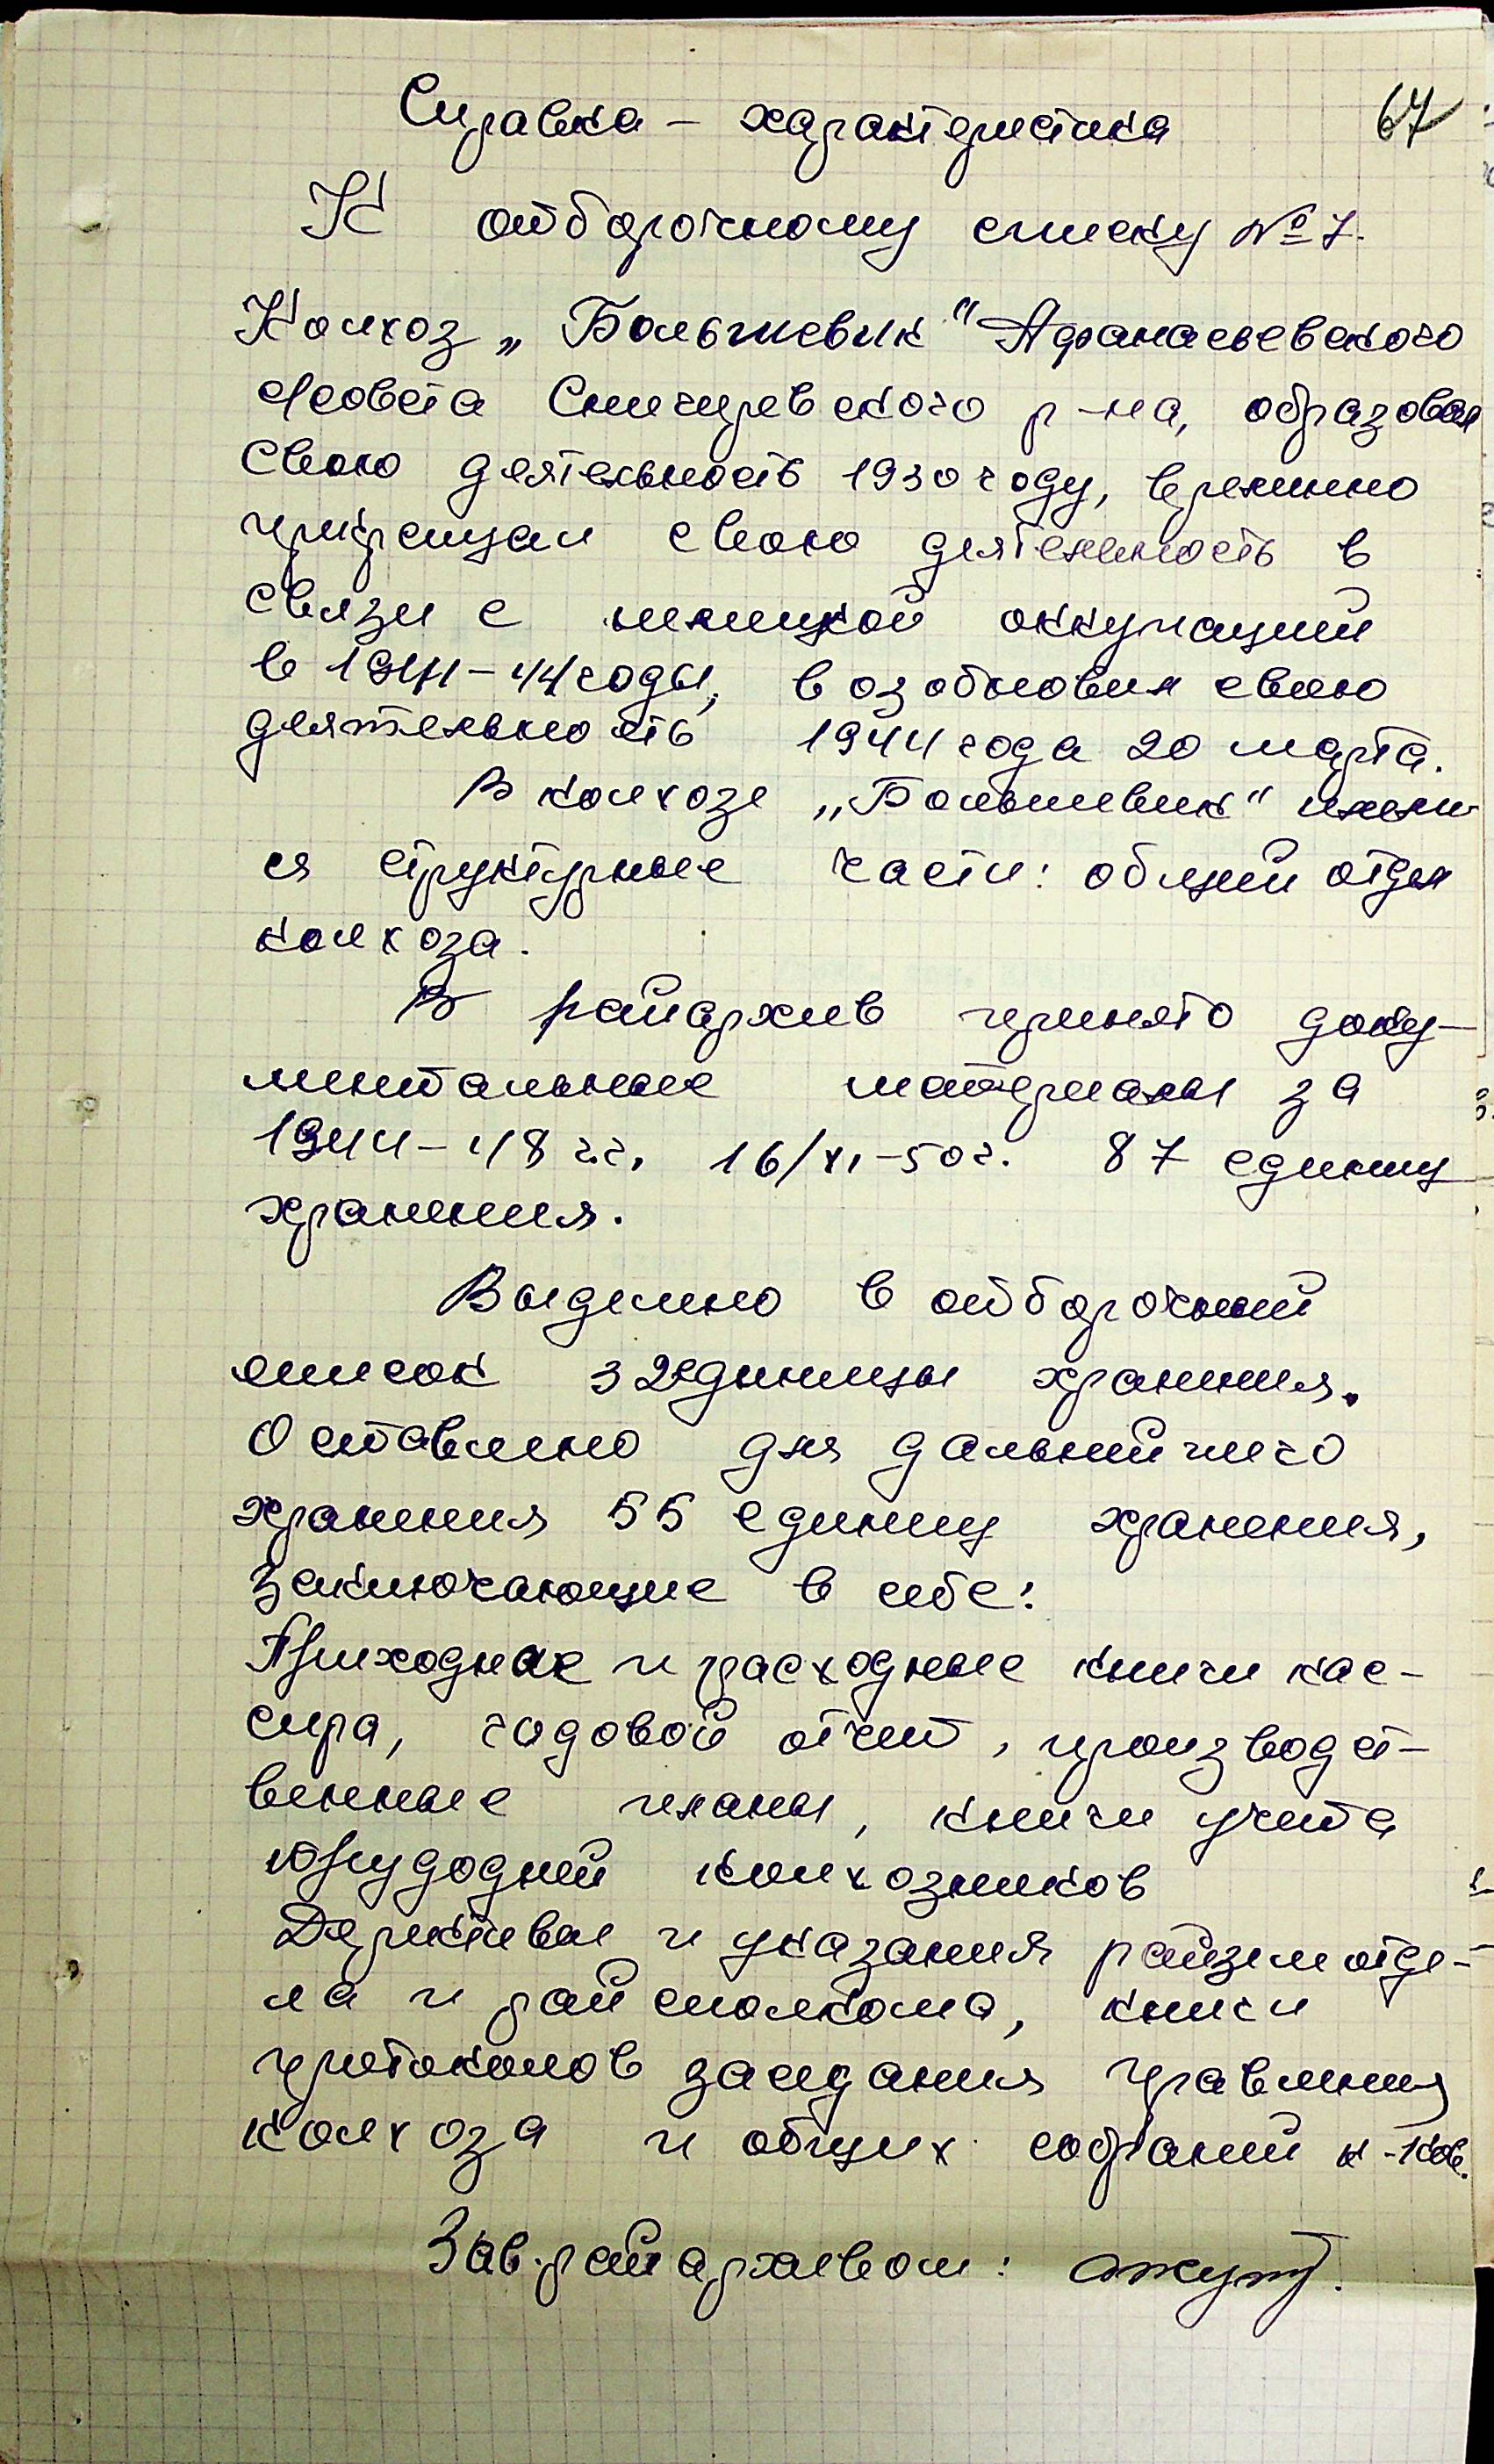 Справка – характеристика
67
К отборочному списку № 7.
Колхоз „Большевик" Афанасьевского
с/совета Снигиревского р-на, образовал
свою деятельность 1930 году, временно
прикращал свою деятельность в
связи с немецкой оккупацией
в 1941–44 годы, возобновил свою
деятельность 1944 года 20 марта.
В колхозе „Большевик" имели
ся структурные части: общий отдел
колхоза.
В райархив принято доку–
ментальные материалы за
1944–48 г.г. 16/XI–50 г. 87 единиц
хранения.
Выделено в отборочный
список 32 единицы хранения.
Оставлено для дальнийшего
хранения 55 единиц хранения,
заключающие в себе:
Приходные и расходные книги кас–
сира, годовой отчет, производст–
венные планы, книги учета
трудодней колхозников
Дерективы и указания райземотде–
ла и райсполкома, книги
протоколов заседания правления
колхоза и общих собраний к-ков.
Зав. райархивом: